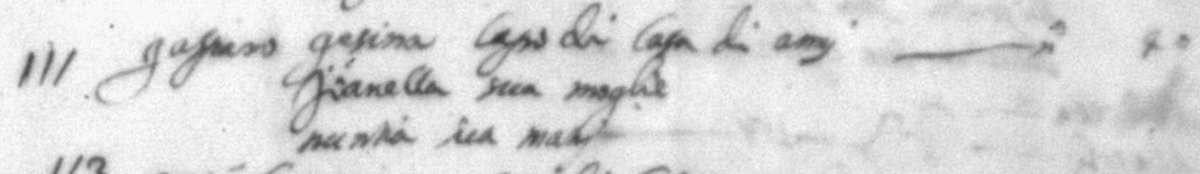 111 gasparo gasina Capo di Casa di anni n° 40
gianella sua moglie
nuntia sua mad